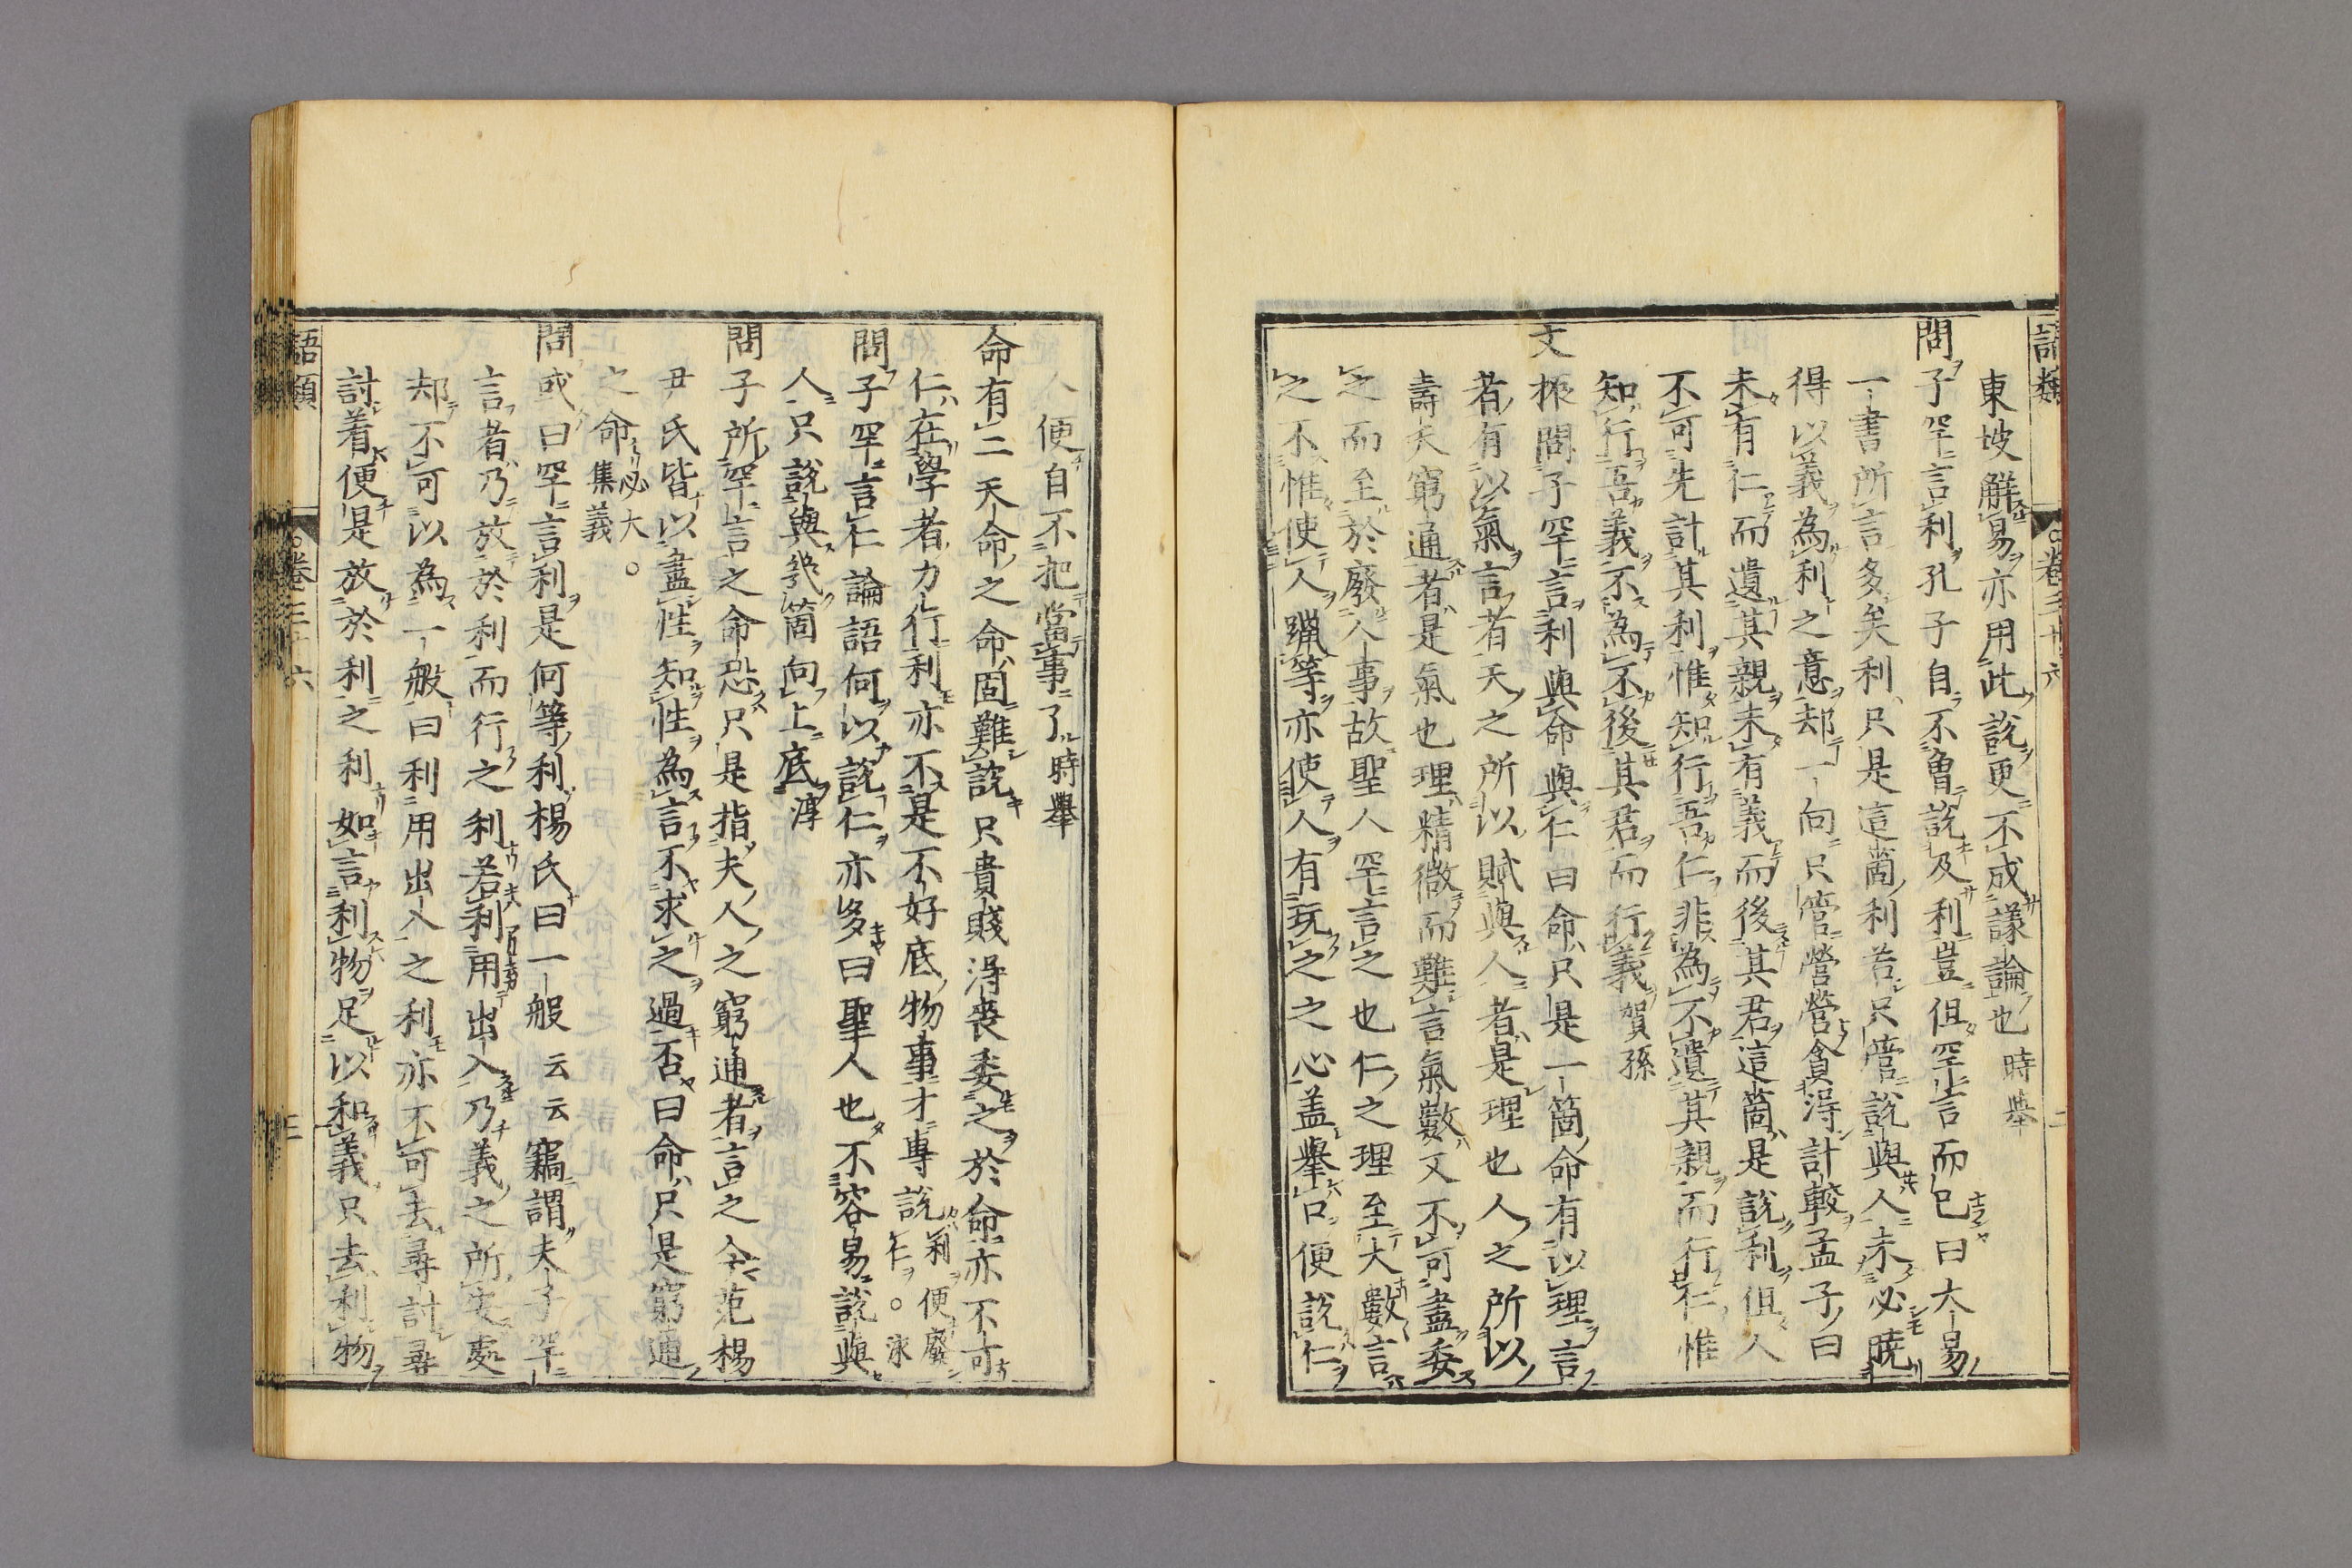 語類
卷三十六
二
東坡解易亦用此說更不成議論也時舉
問子罕言利孔子自不曾說及利豈但罕言而已曰大易
一書所言多矣利只是這箇利若只管說與人未必曉
得以義為利之意却一向只管營營貪得計較孟子曰
未有仁而遺其親未有義而後其君這箇是說利但人
不可先計其利惟知行吾仁非為不遺其親而行仁惟
知行吾義不為不後其君而行義賀孫
文振問子罕言利與命與仁曰命只是一箇命有以理言
者有以氣言者天之所以賦與人者是理也人之所以
壽夭窮通者是氣也理精微而難言氣數又不可盡委
之而至於廢人事故聖人罕言之也仁之理至大數言
之不惟使人躐等亦使人有玩之之心盖舉口便說仁
人便自不把當事了時舉
命有二天命之命固難說只貴賤得喪委之於命亦不可
仁在學者力行利亦不是不好底物事才專說利便廢
仁。泳
問子罕言仁論語何以說仁亦多曰聖人也不容易說與
人只說與幾箇向上底淳
問子所罕言之命恐只是指夫人之窮通者言之今范楊
尹氏皆以盡性知性為言不求之過否曰命只是窮通
之命必大。
集義
問或曰罕言利是何等利楊氏曰一般云云竊謂夫子罕
言者乃放於利而行之利若利用出入乃義之所安處
却不可以為一般曰利用出入之利亦不可去尋討尋
討着便是放於利之利如言利物足以和義只去利物
語類
卷三十六
三